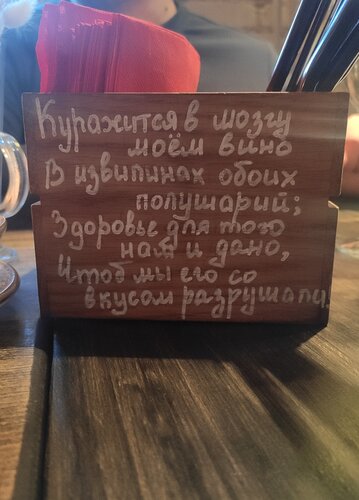 Куражится в мозгу
моём вино
В извилинах обоих
полушарий;
Здоровье для того
нам и дано,
Чтоб мы его со
вкусом разрушали.